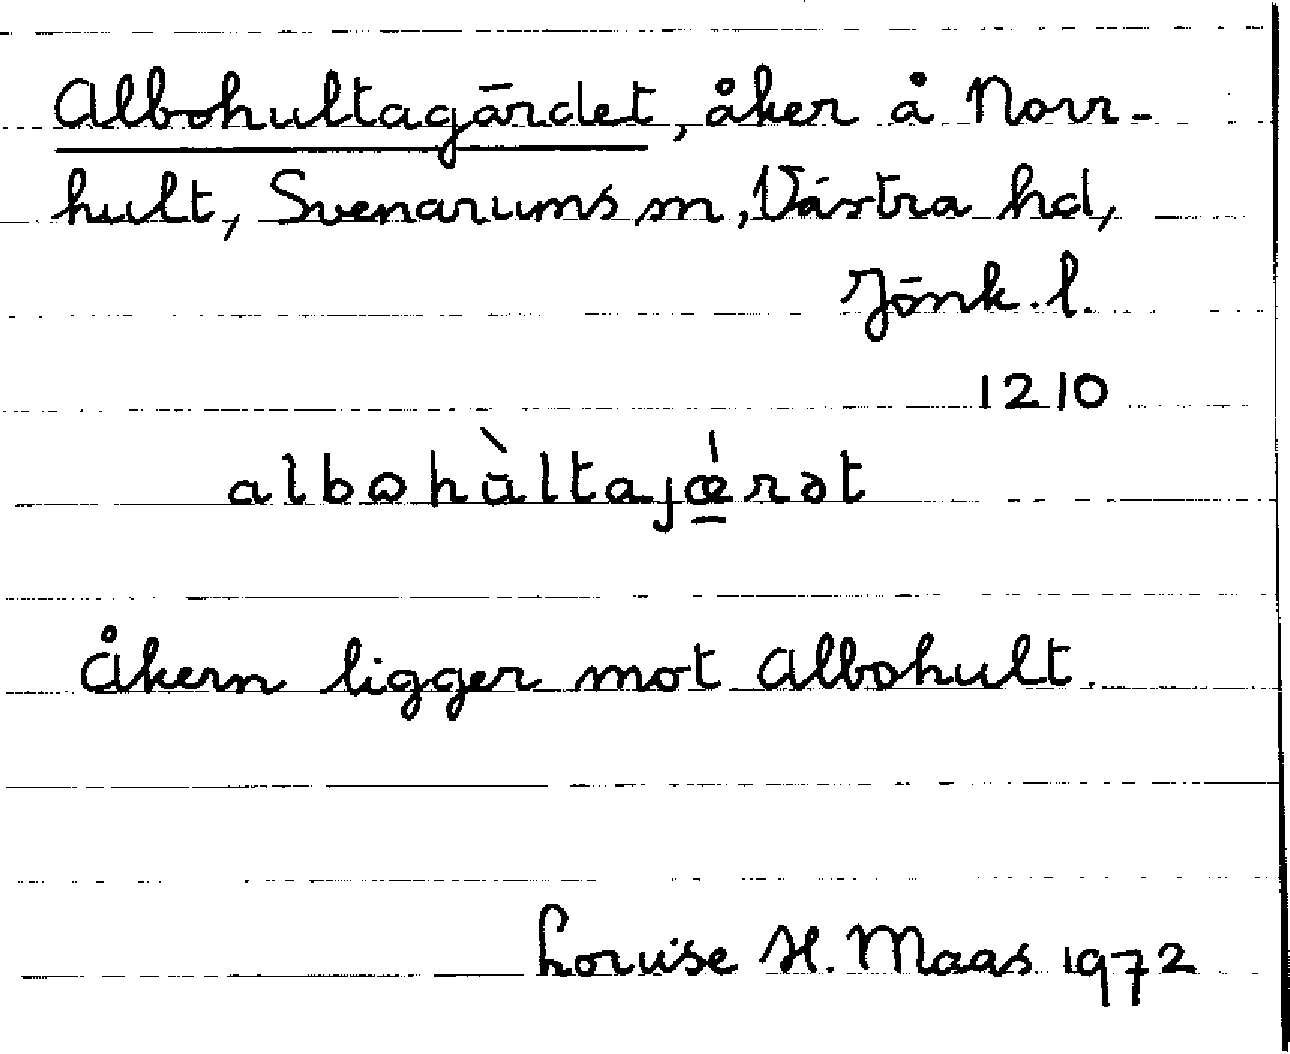 Albohultagärdet, åker å Norr-
hult, Svenarums sn, Västra hd,
Jönk. l.
1210
albωhùltajœ́rət
Åkern ligger mot Albohult.
Louise H. Maas 1972